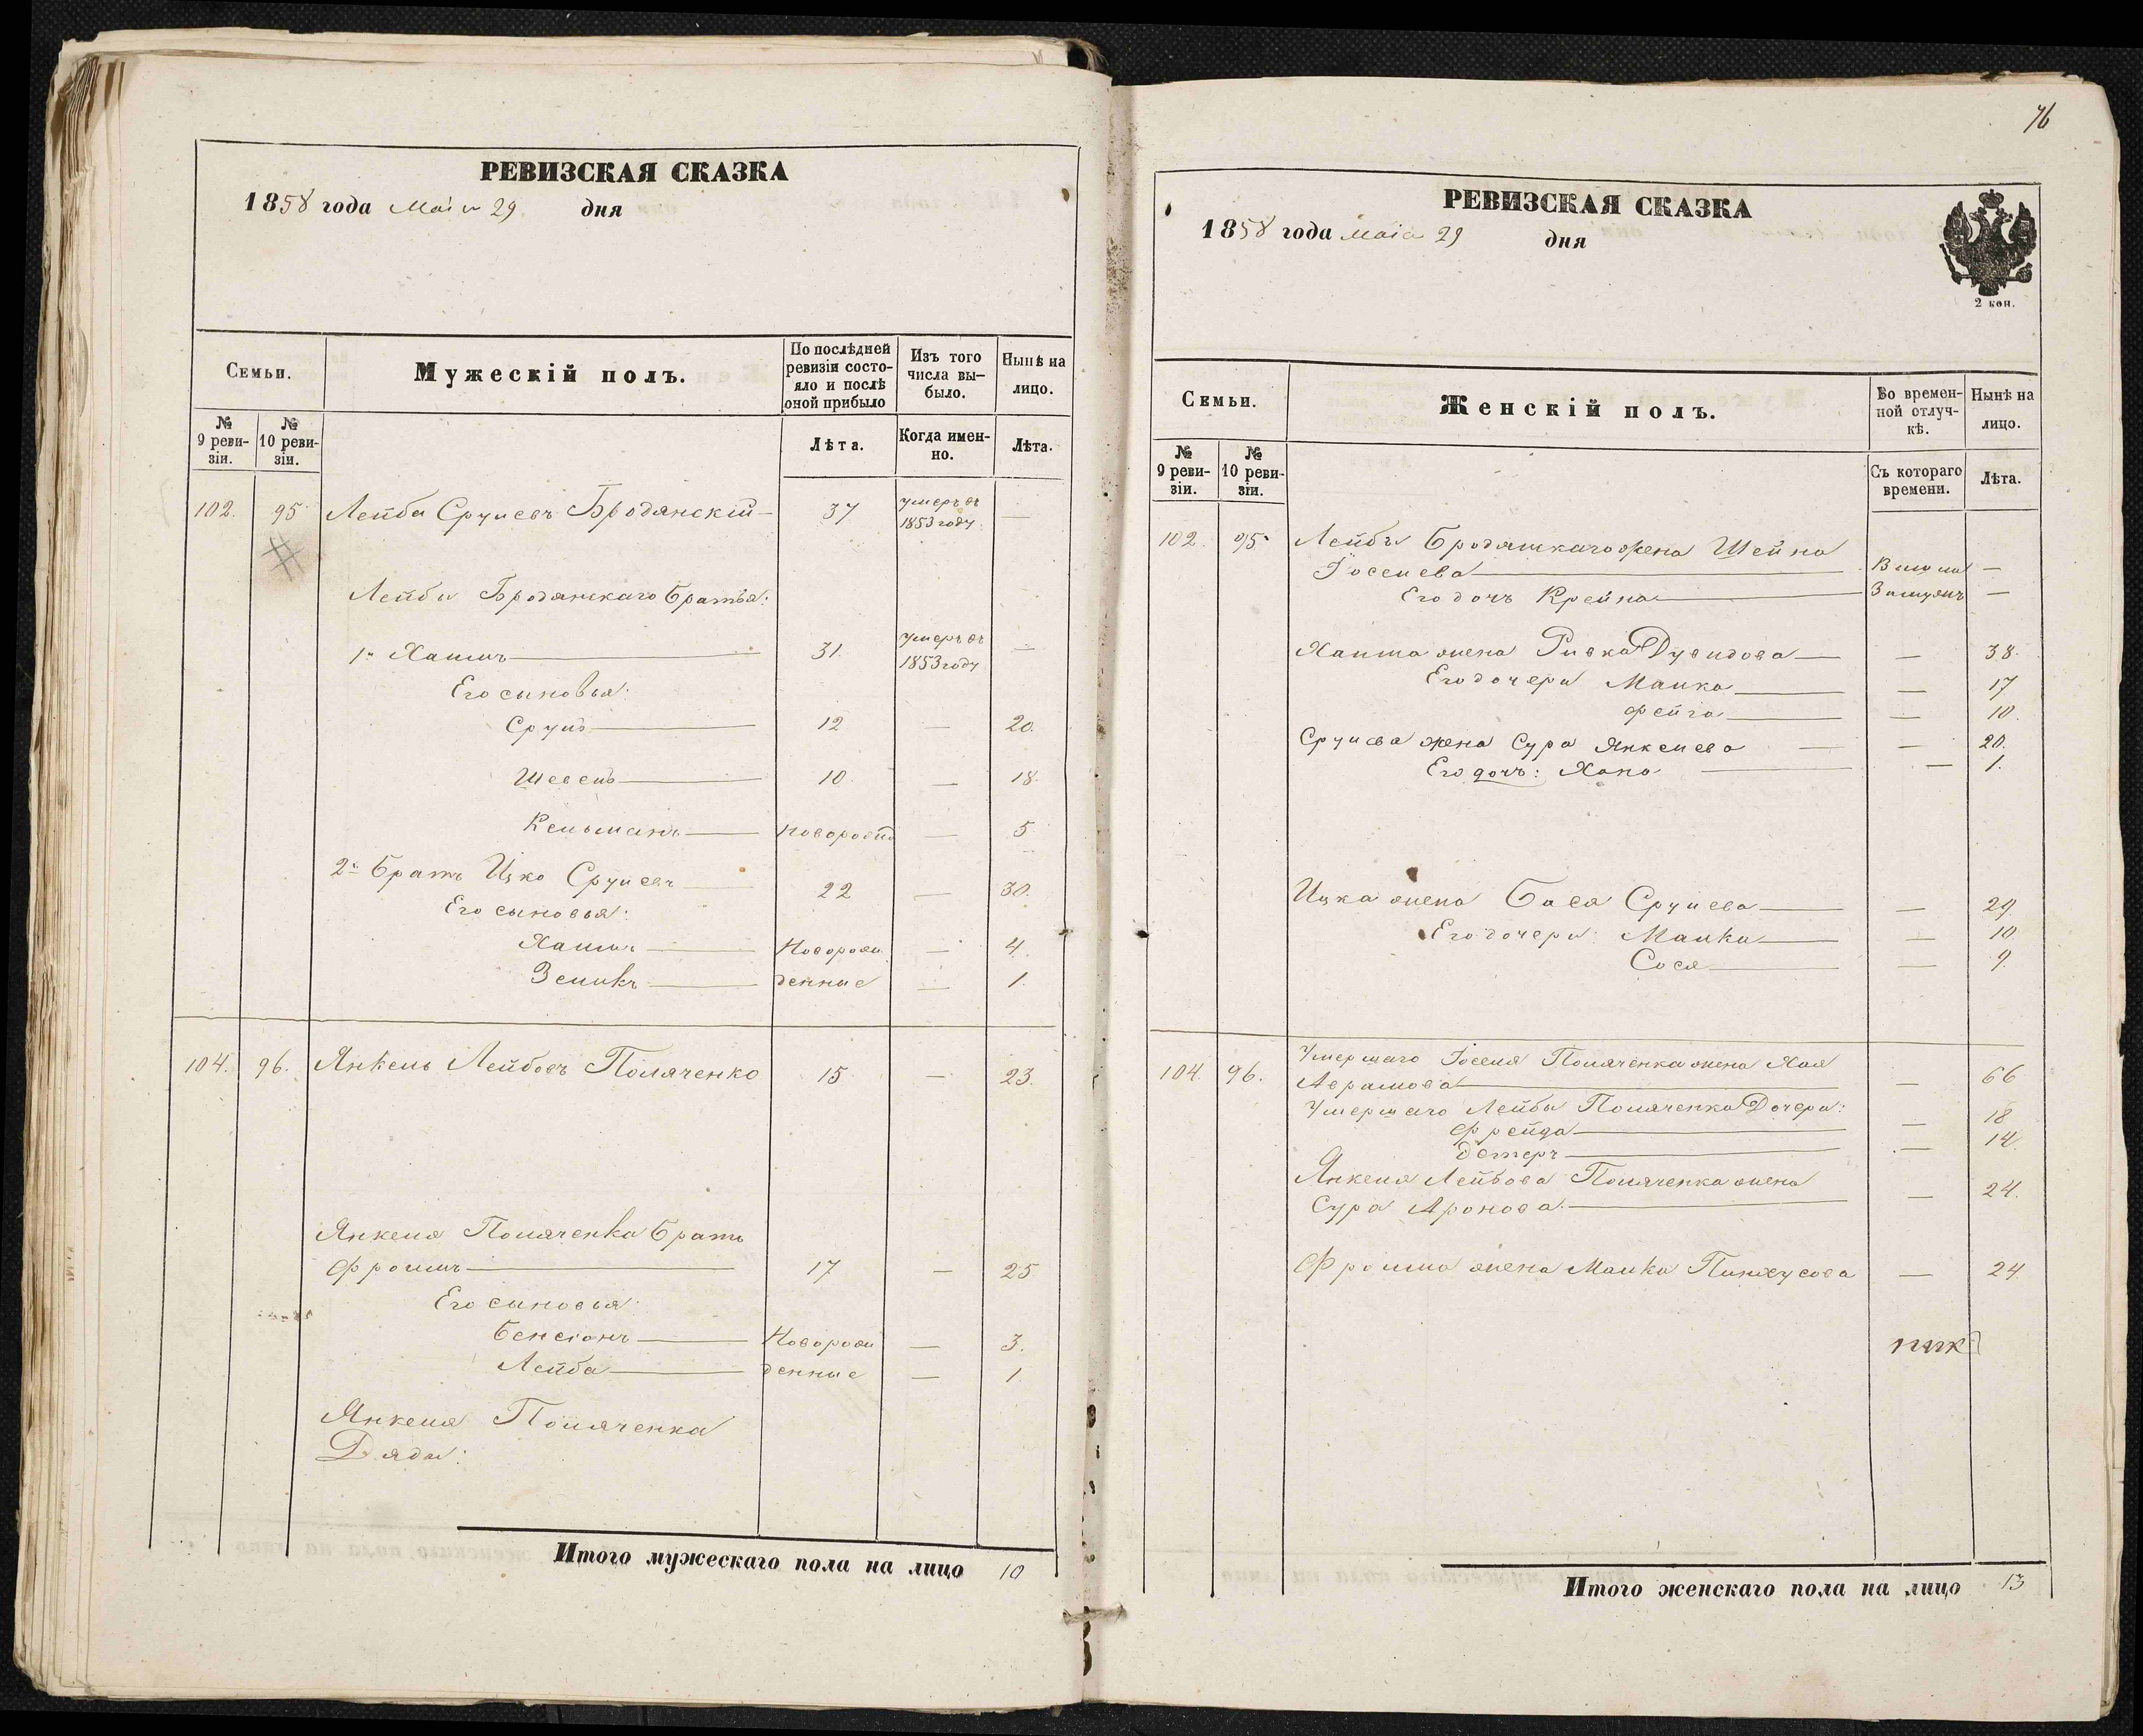 РЕВИЗСКАЯ СКАЗКА
1858 года Маія 29 дня
Семьи.
Мужескій полъ.
По послѣдней ревизіи состояло и послѣ оной прибыло
Изъ того числа вы-было.
Нынѣ на лицо.
№ 9 реви-зіи.
№ 10 реви-зіи.
Лѣта.
Когда имен-но.
Лѣта.
102. 95 Лейба Срулевъ Бродянскій 37 умеръ въ 1853 году —
Лейбы Бродянскаго Братья:
1й Хаимъ 31. умеръ въ 1853 году —
Его сыновья:
Сруль 12 — 20.
Шевель 10. — 18.
Кельманъ новорожд — 5
2й Братъ Ицко Срулевъ 22 — 30.
Его сыновья:
Хаимъ Новорож — 4.
Зеликъ денные — 1.
104. 96. Янкель Лейбовъ Поляченко 15 — 23.
Янкеля Поляченка Братъ
Фроимъ 17 — 25
Его сыновья:
Бенсіонъ Новорож — 3.
Лейба денные — 1.
Янкеля Поляченка
Дяди:
Итого мужескаго пола на лицо 10
76
РЕВИЗСКАЯ СКАЗКА
1858 года Маія 29 дня
2 коп.
Семьи.
Женскій полъ.
Во времен-ной отлуч-кѣ.
Нынѣ на лицо.
№ 9 реви-зіи.
№ 10 реви-зіи.
Съ котораго времени.
Лѣта.
102. 95 Лейбы Бродянскаго жена Шейна
Іоселева Вышла —
Его дочь Крейна Замужъ —
Хаима жена Ривка Дувидова — 38.
Его дочери Малка — 17
Фейга — 10.
Срулева жена Сура Янкелева — 20.
Его дочь: Хана — 1.
Ицка жена Бася Срулева — 29.
Его дочери: Малка — 10
Сося — 9.
104. 96. Умершаго Іоселя Поляченка жена Хая
Абрамова — 66
Умершаго Лейбы Поляченка Дочери:
Фрейда — 18
Эстеръ — 14
Янкеля Лейбова Поляченка жена
Сура Аронова — 24.
Фроима жена Малка Пинхусова — 24.
Итого женскаго пола на лицо 13